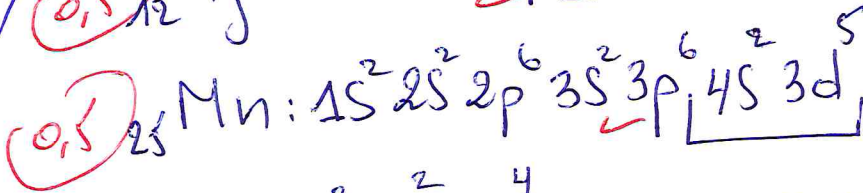 0,5 12 g
0,5 25Mn: 1s² 2s² 2p⁶ 3s² 3p⁶ 4s² 3d⁵
2 4